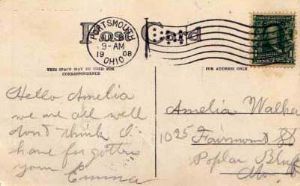 Post Card
PORTSMOUTH
9-AM
1908
OHIO
THIS SPACE MAY BE USED FOR
CORRESPONDENCE
FOR ADDRESS ONLY
Hello Amelia
we are all well
don't think I
have forgotten
you
Emma
Amelia Walka
1025 Fairmount St
Poplar Bluff
Mo.